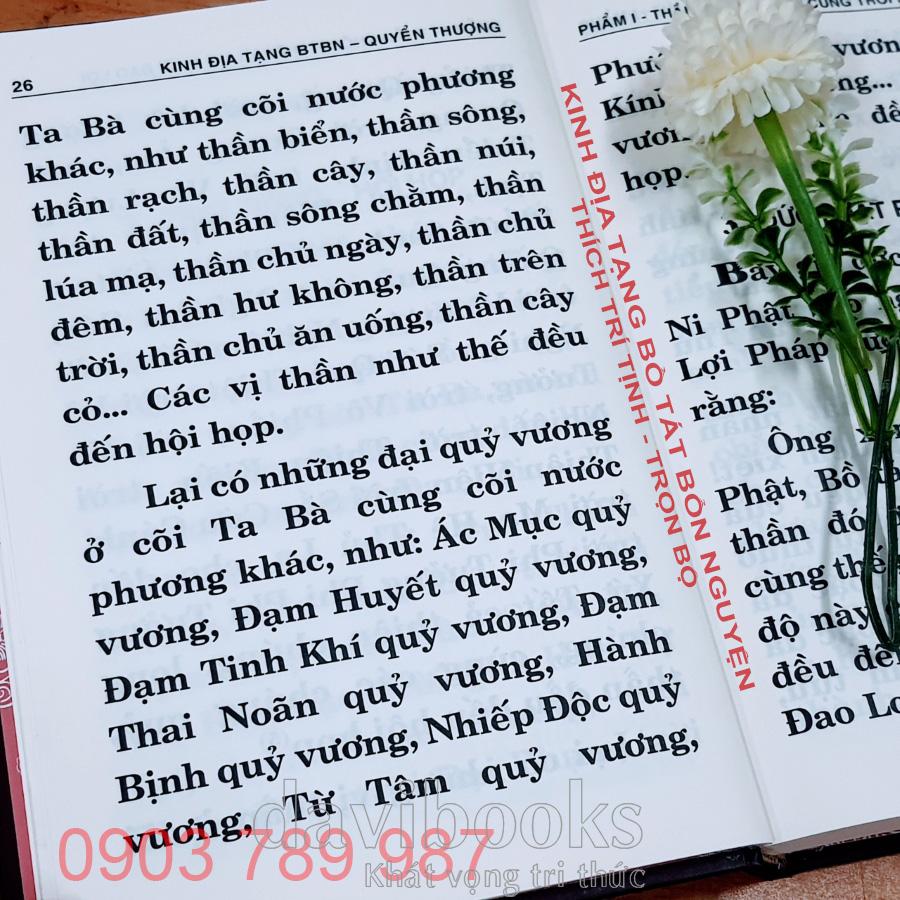 26
KINH ĐỊA TẠNG BTBN – QUYỂN THƯỢNG
Ta Bà cùng cõi nước phương
khác, như thần biển, thần sông,
thần rạch, thần cây, thần núi,
thần đất, thần sông chằm, thần
lúa mạ, thần chủ ngày, thần chủ
đêm, thần hư không, thần trên
trời, thần chủ ăn uống, thần cây
cỏ... Các vị thần như thế đều
đến hội họp.
Lại có những đại quỷ vương
ở cõi Ta Bà cùng cõi nước
phương khác, như: Ác Mục quỷ
vương, Đạm Huyết quỷ vương,
Đạm Tinh Khí quỷ vương, Đạm
Thai Noãn quỷ vương, Hành
Bịnh quỷ vương, Nhiếp Độc quỷ
vương, Từ Tâm quỷ vương,
PHẨM I -
CUNG
vương
đều
họp.
Ni Phật
Lợi Pháp
rằng:
Ông
Phật, Bồ
thần đó
cùng thế
độ này
đều đến
Đao Lợi
KINH ĐỊA TẠNG BỒ TÁT BỔN NGUYỆN
THÍCH TRÍ TỊNH - TRỌN BỘ
davibooks
Khát vọng tri thức
0903 789 987